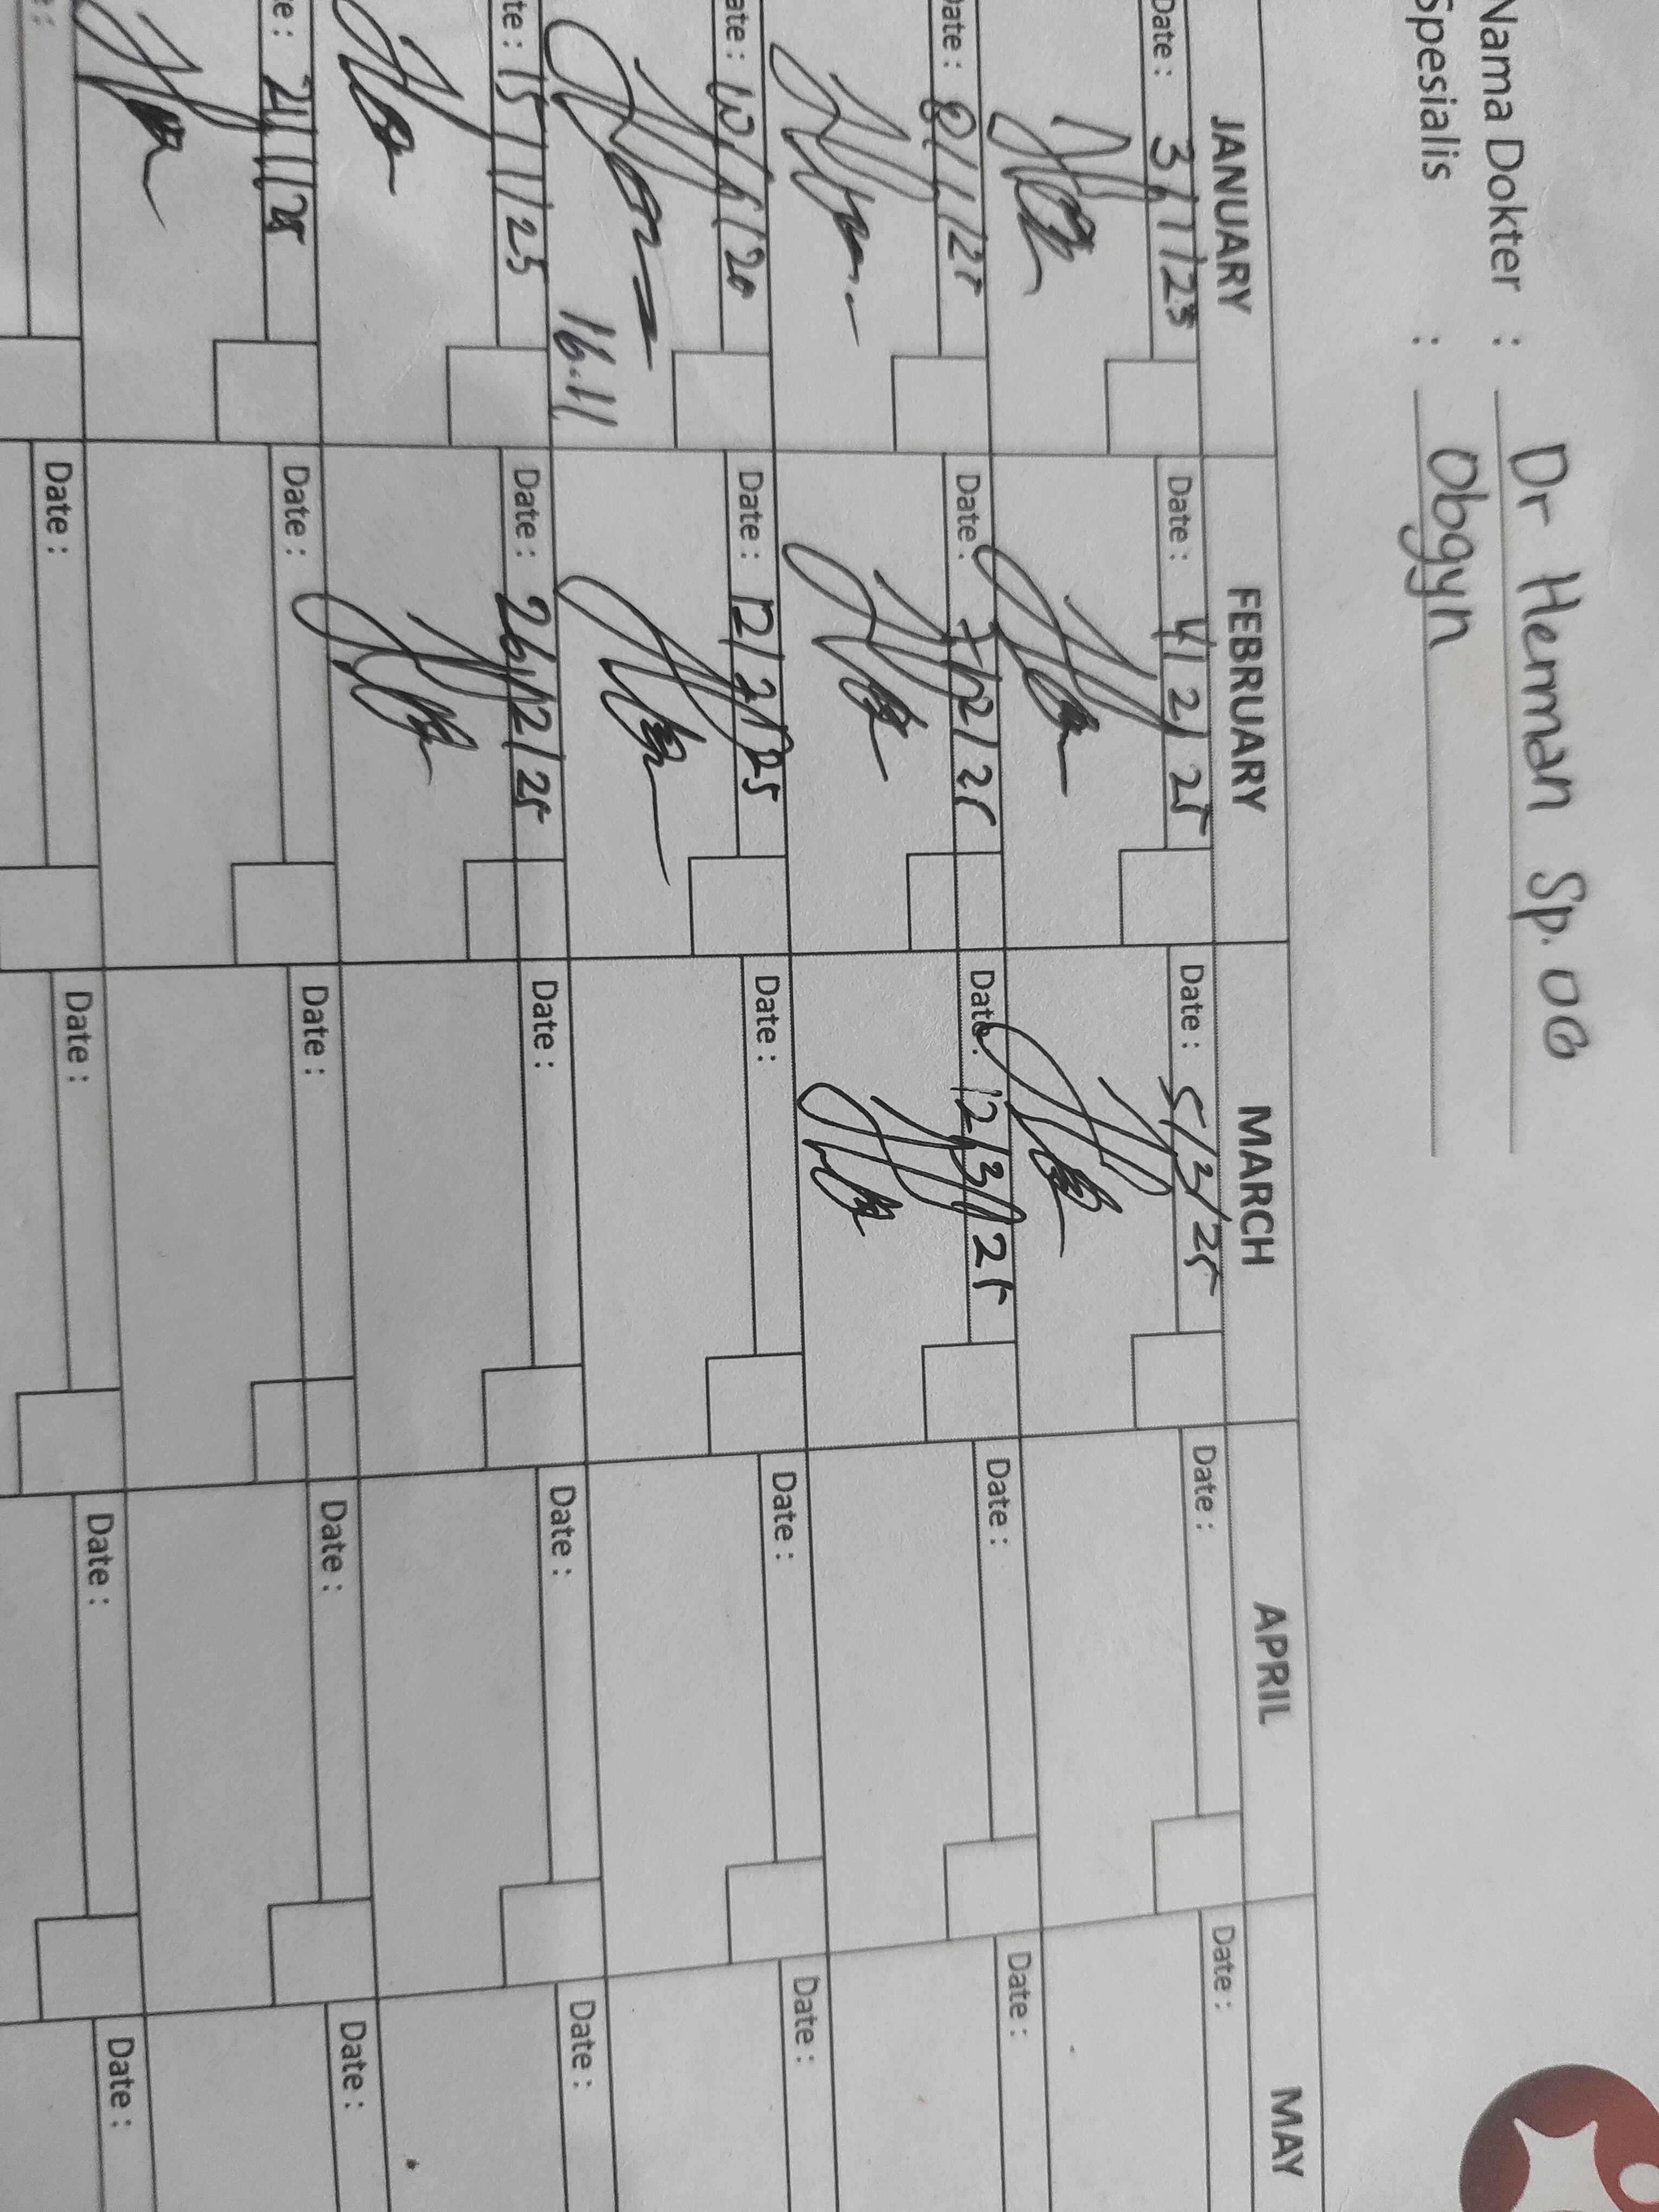 Nama Dokter : Dr Herman Sp.OG
Spesialis : Obgyn
JANUARY FEBRUARY MARCH APRIL MAY
Date : 3/1/25 Date : 4/2/25 Date : 5/3/25 Date : Date :
Date : 8/1/25 Date : 7/2/25 Date : 12/3/25 Date : Date :
Date : 10/1/20 Date : 12/2/25 Date : Date : Date :
16.11
Date : 15/1/25 Date : 26/2/25 Date : Date : Date :
Date : 21/1/25 Date : Date : Date : Date :
Date : Date : Date : Date :